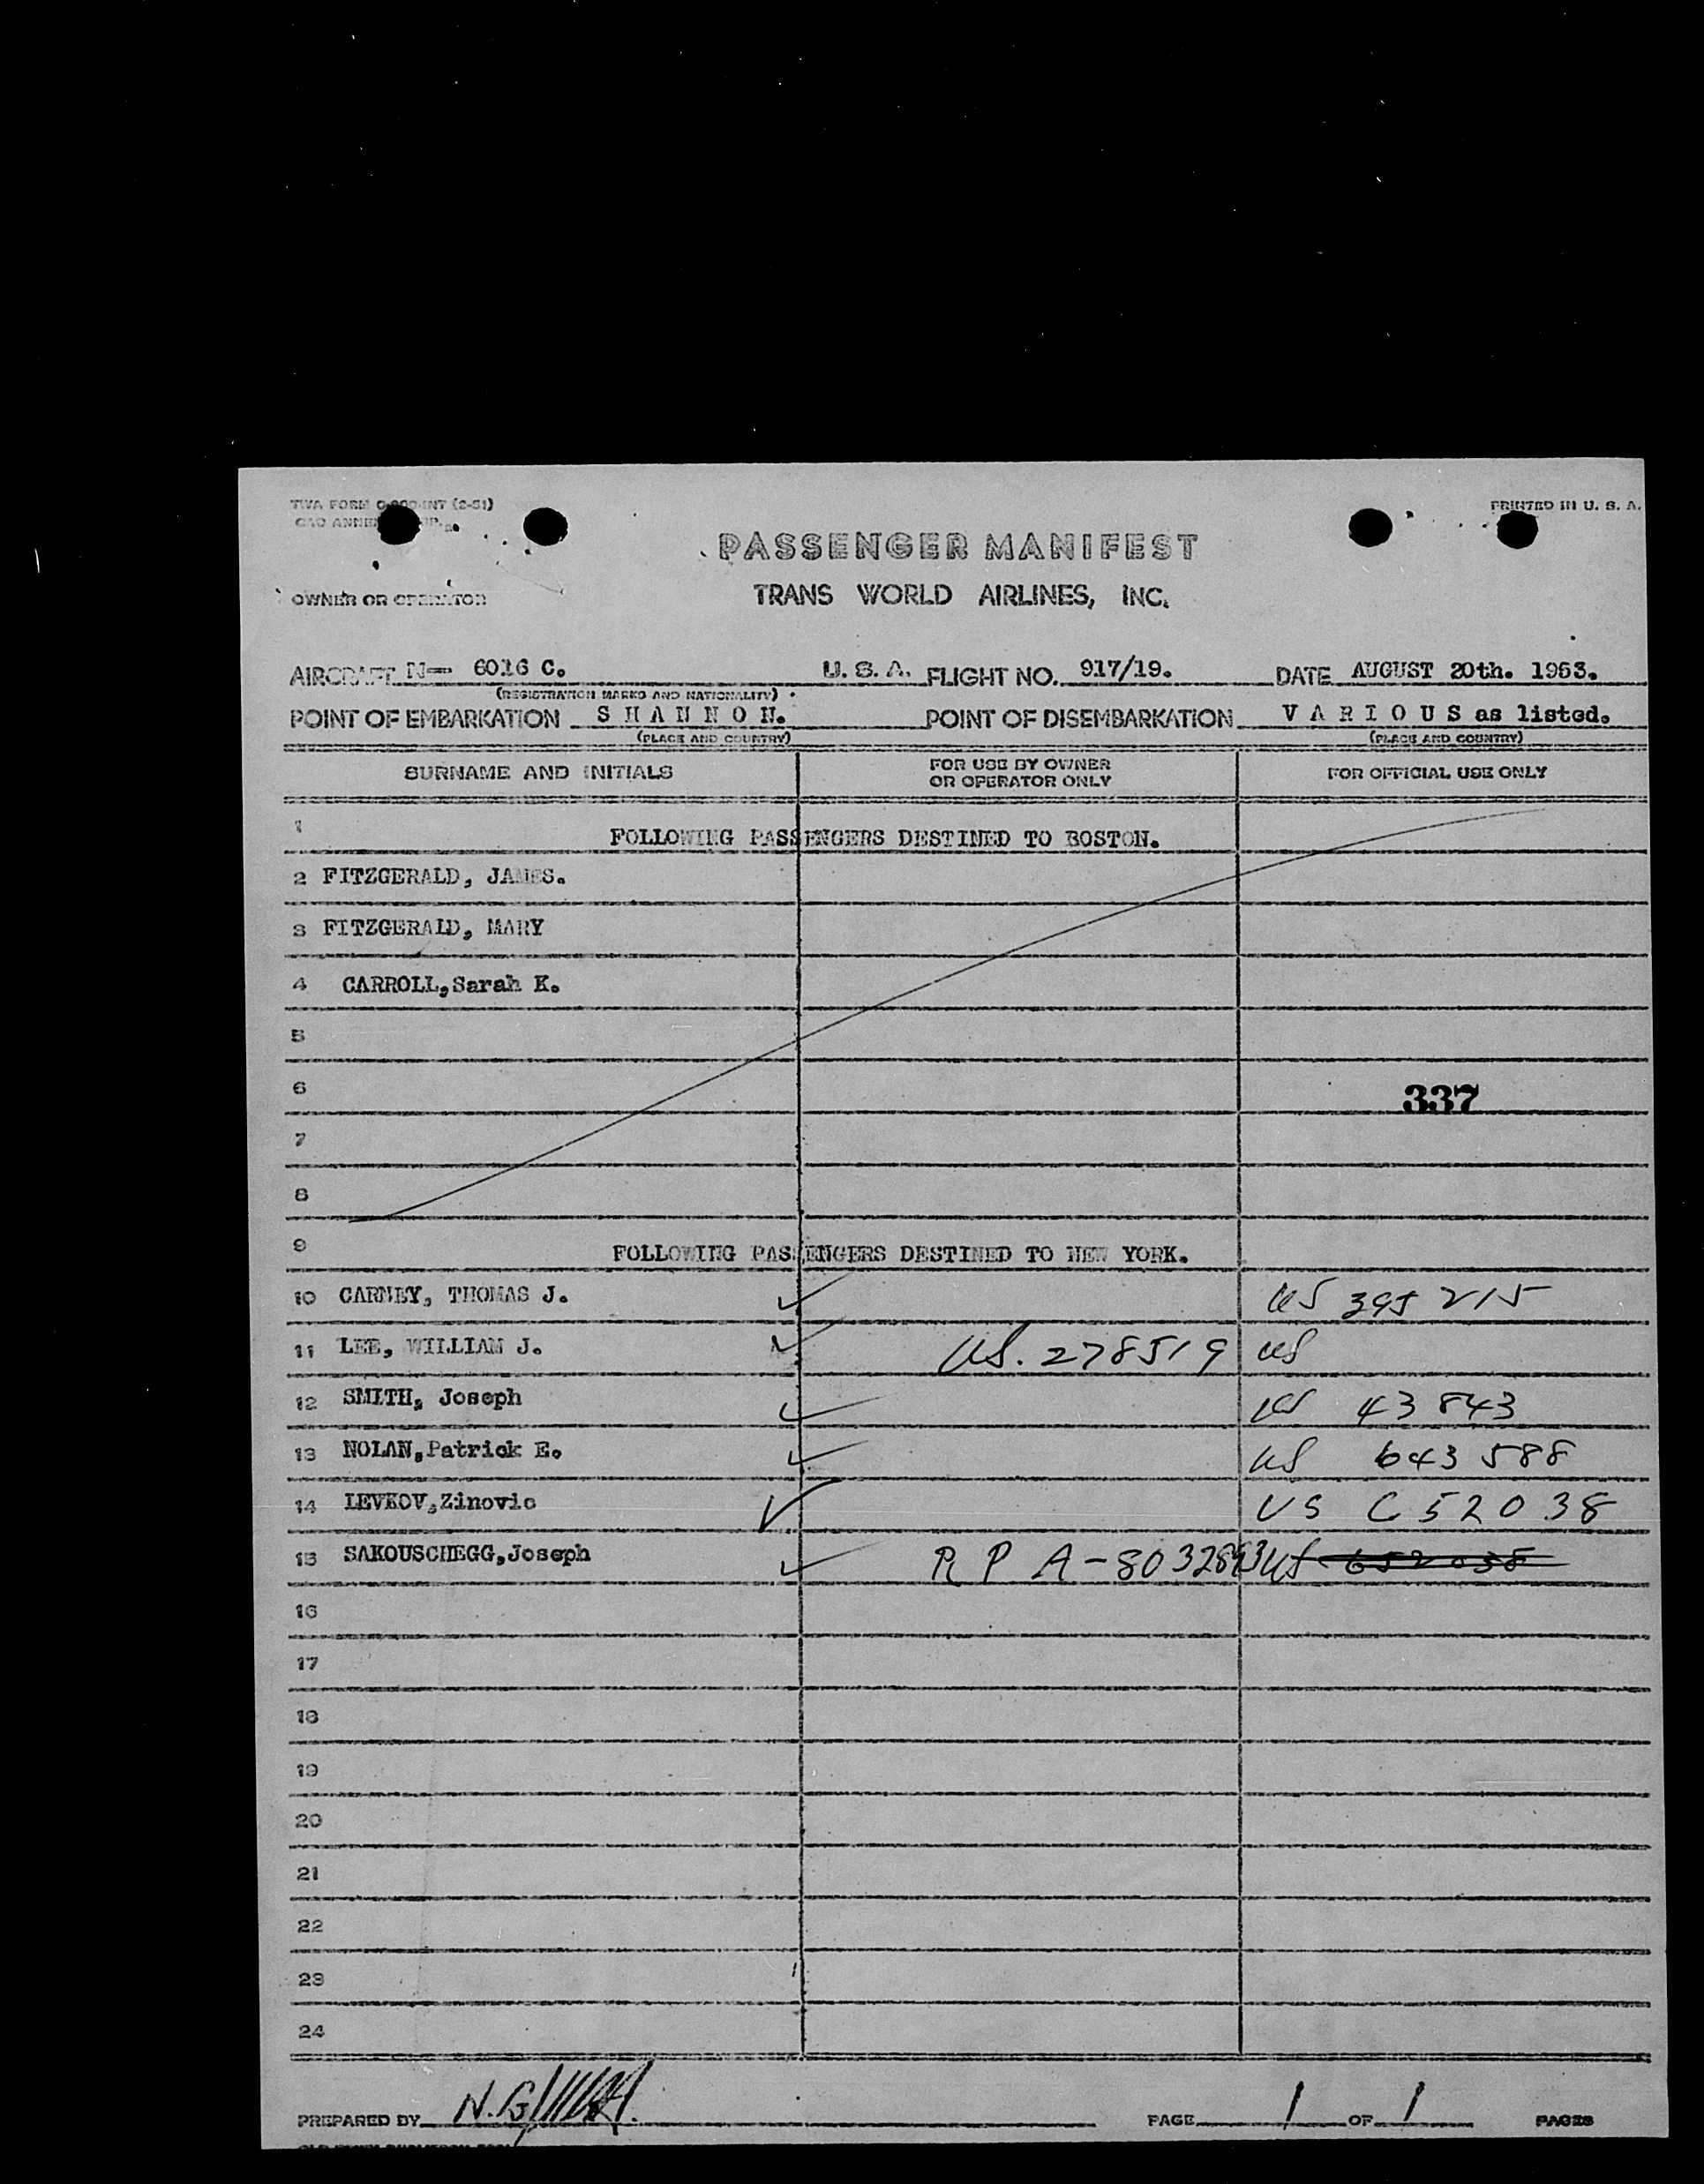 TWA FORM
PRINTED IN U. S. A.
PASSENGER MANIFEST
OWNER OR OPERATOR
TRANS WORLD AIRLINES, INC.
AIRCRAFT N- 6016 C. U. S. A. FLIGHT NO. 917/19. DATE AUGUST 20th. 1953.
(REGISTRATION MARKS AND NATIONALITY)
POINT OF EMBARKATION S H A N N O N. POINT OF DISEMBARKATION V A R I O U S as listed.
(PLACE AND COUNTRY) (PLACE AND COUNTRY)
SURNAME AND INITIALS FOR USE BY OWNER OR OPERATOR ONLY FOR OFFICIAL USE ONLY
1 FOLLOWING PASSENGERS DESTINED TO BOSTON.
2 FITZGERALD, JAMES.
3 FITZGERALD, MARY
4 CARROLL,Sarah K.
5
6 337
7
8
9 FOLLOWING PASSENGERS DESTINED TO NEW YORK.
10 CARNEY, THOMAS J. US 395 215
11 LEE, WILLIAM J. US. 278519 US
12 SMITH, Joseph US 43843
13 NOLAN,Patrick E. US 643 588
14 LEVKOV,Zinovic US C52038
15 SAKOUSCHEGG,Joseph R P A- US 652 038
16
17
18
19
20
21
22
23
24
PREPARED BY N. PAGE 1 OF 1 PAGES